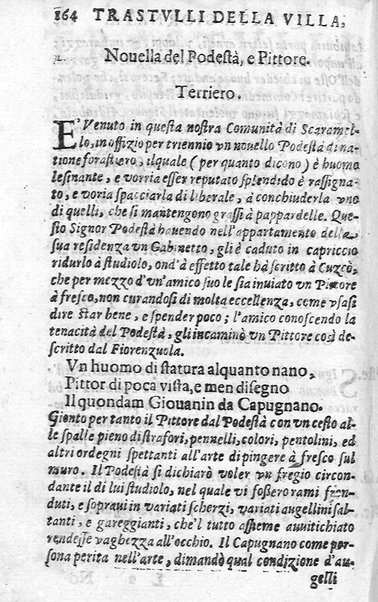 164 TRASTVLLI DELLA VILLA,
Nouella del Podestà, e Pittore.
Terriero.
E' Venuto in questa nostra Comunità di Scaramel-
lo, in offizio per triennio vn nouello Podestà di na-
tione forastiero, ilquale (per quanto dicono) è huomo
lesinante, e vorria esser reputato splendido è rassigna-
to, e voria spacciarla di liberale, à conchiuderla vno
di quelli, che si mantengono grassi à pappardelle. Que-
sto Signor Podestà hauendo nell'appartamento della
sua residenza vn Gabinetto, gli è caduto in capriccio
ridurlo à studiolo, ond'à effetto tale hà scritto à Cuzcò,
che per mezzo d'vn'amico suo le sia inuiato vn Pittore
à fresco, non curandosi di molta eccellenza, come vsasi
dire star bene, e spender poco; l'amico conoscendo la
tenacità del Podestà, gli incaminò vn Pittore così de-
scritto dal Fiorenzuola.
Vn huomo di statura alquanto nano,
Pittor di poca vista, e men disegno
Il quondam Giouanin da Capugnano.
Gionto per tanto il Pittore dal Podestà con vn cesto al-
le spalle pieno di strafori, pennelli, colori, pentolini, ed
altri ordegni spettanti all'arte di pingere à fresco sul
muro. Il Podestà si dichiarò voler vn fregio circon-
dante il di lui studiolo, nel quale vi fossero rami fron-
duti, e sopraui in variati scherzi, variati augellini sal-
tanti, e gareggianti, che'l tutto assieme auuitichiato
rendesse vaghezza all'occhio. Il Capugnano come per-
sona perita nell'arte, dimandò qual condizione d'au-
gelli